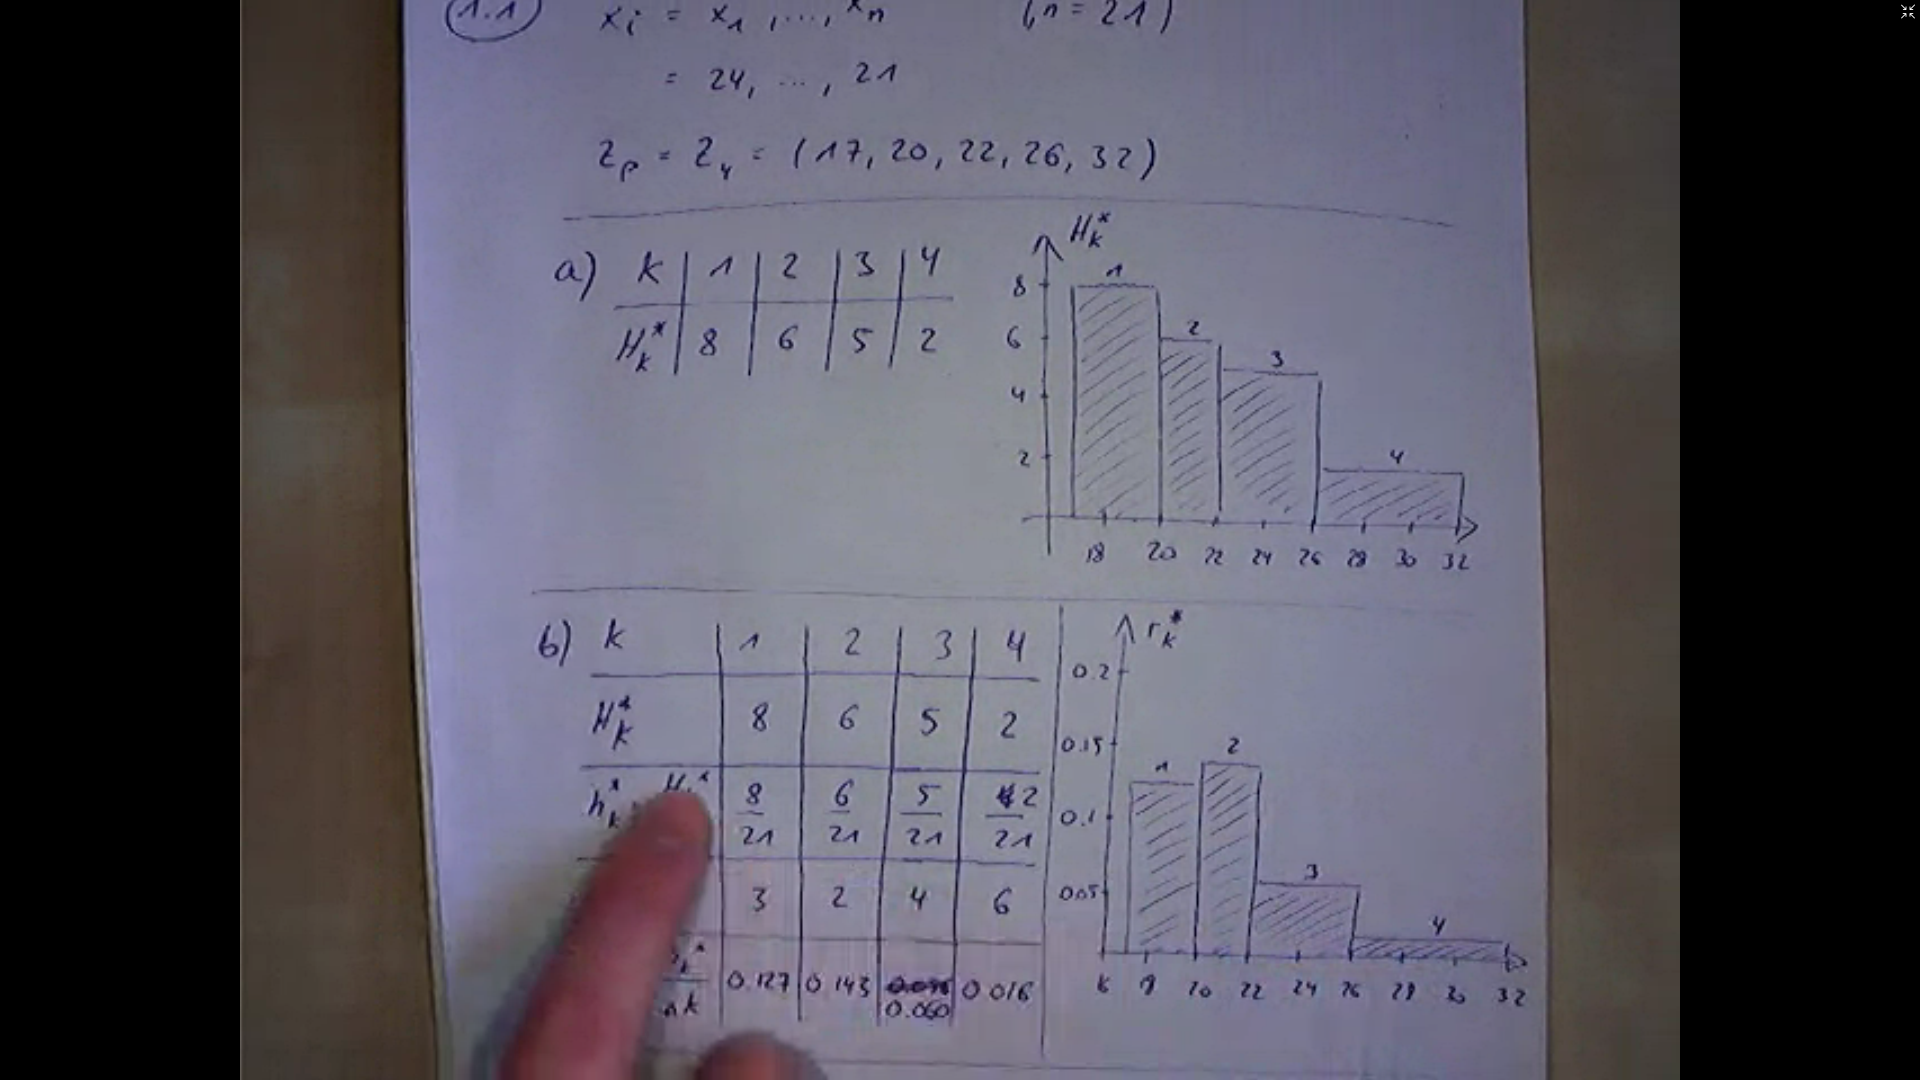 1.1 xi = x1, ..., xn (n = 21)
= 24, ..., 21
Zp = Z4 = (17, 20, 22, 26, 32)
a) k 1 2 3 4
Hk* 8 6 5 2
Hk*
8
6
4
2
1 2 3 4
18 20 22 24 26 28 30 32
b) k 1 2 3 4
Hk* 8 6 5 2
hk* 8/21 6/21 5/21 2/21
3 2 4 6
0.127 0.143 0.060 0.016
rk*
0.2
0.15
0.1
0.05
1 2 3 4
18 20 22 24 26 28 30 32